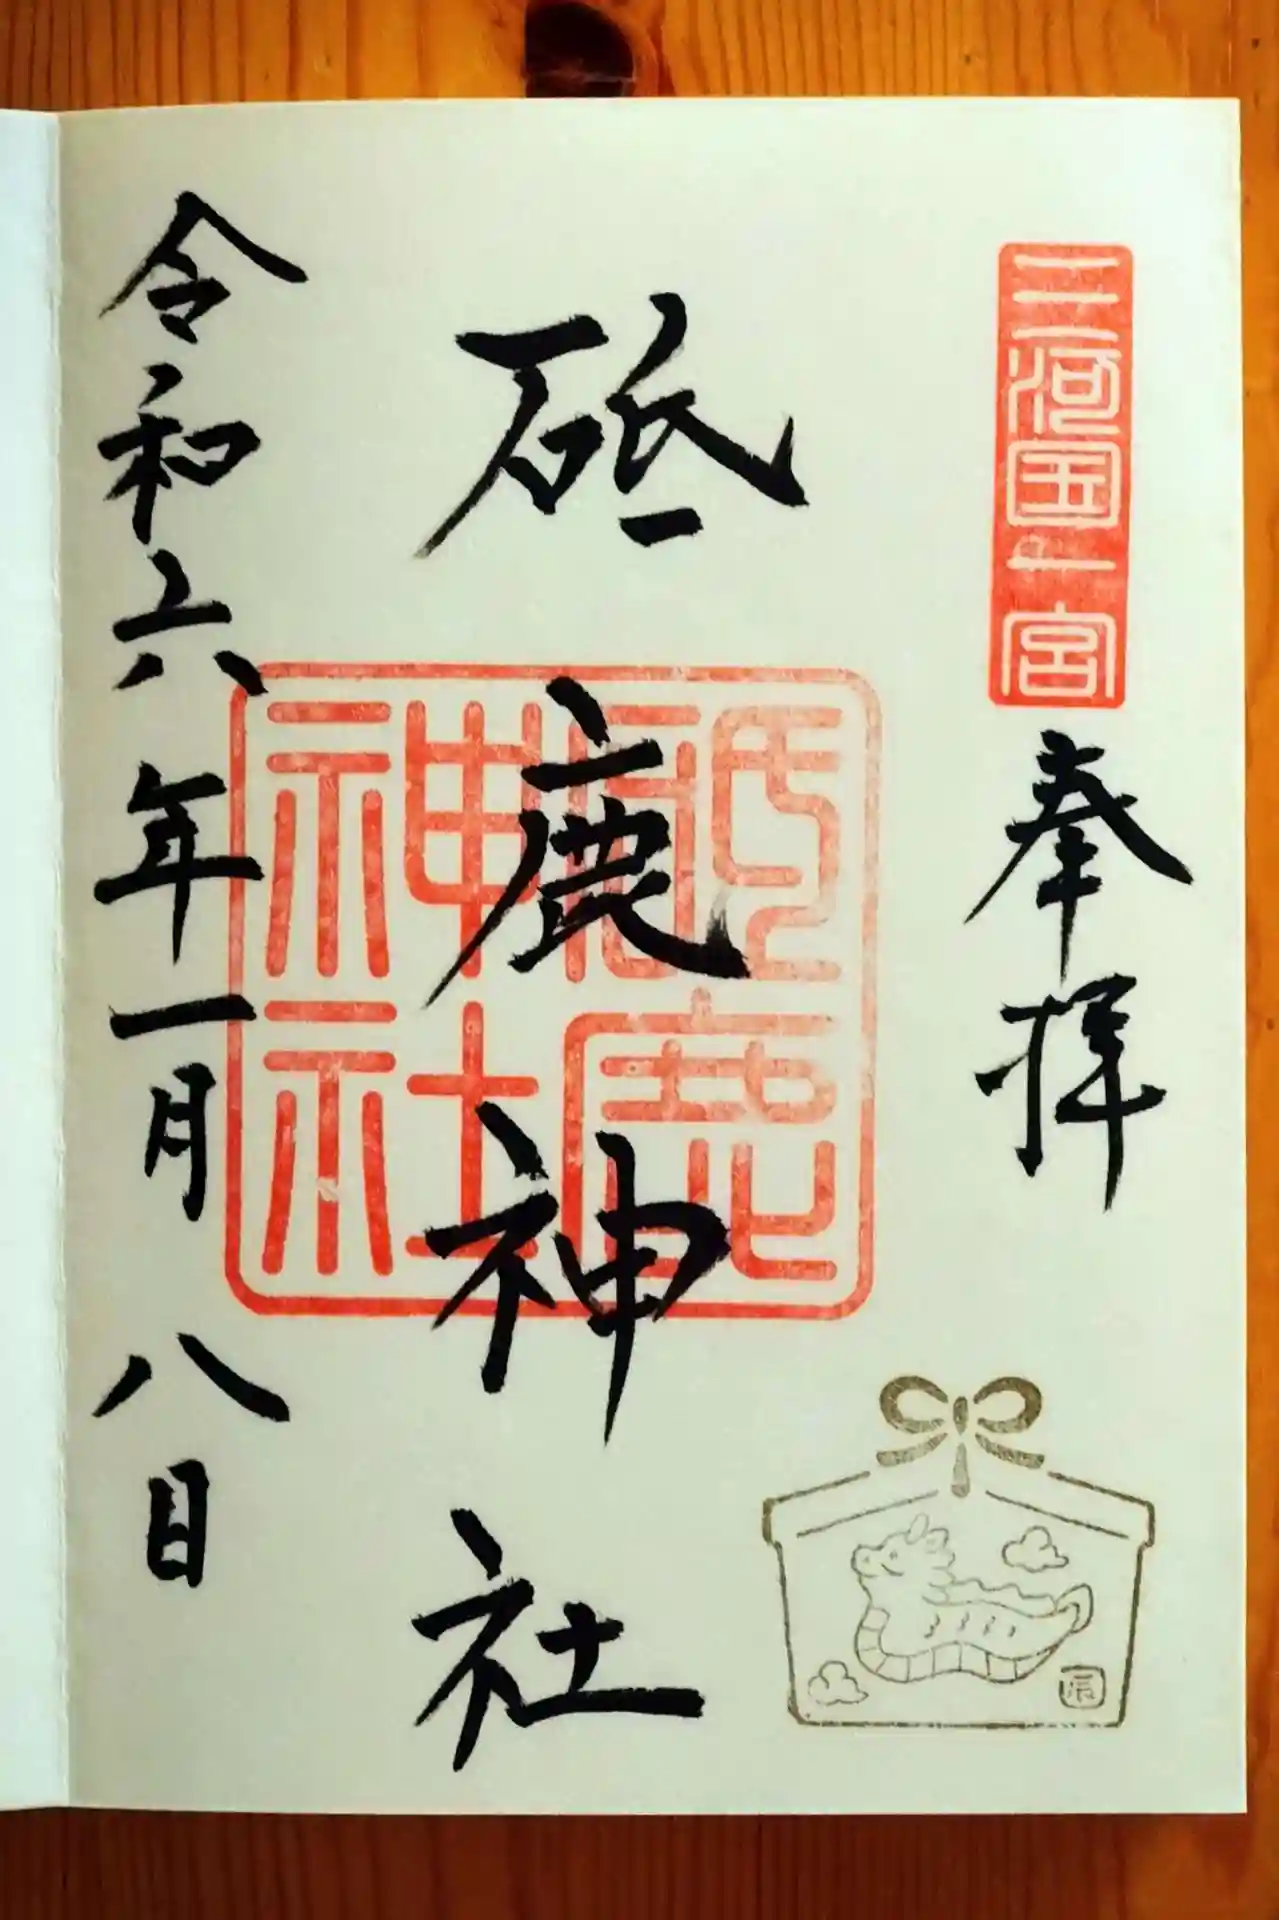 三河国一宮
奉拝
砥鹿神社
砥鹿
神社
令和六年一月八日
辰